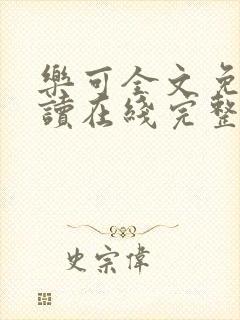 樂可全文免
讀在綫完整
史宗偉